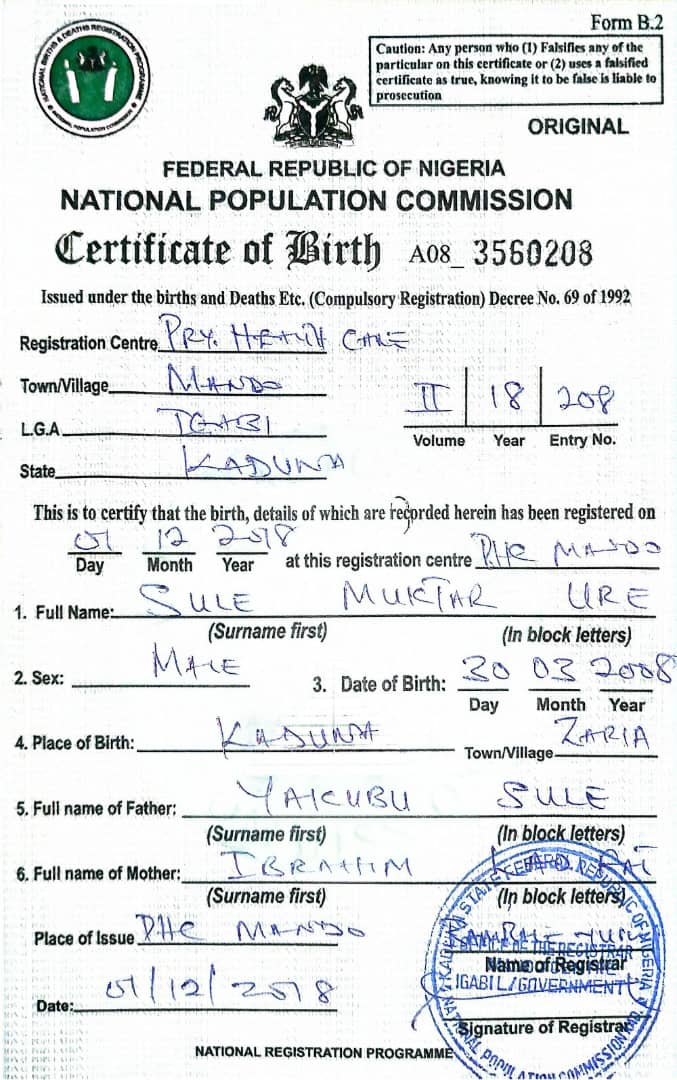 Form B.2
NATIONAL BIRTHS & DEATHS REGISTRATION PROGRAMME
NATIONAL POPULATION COMMISSION
Caution: Any person who (1) Falsifies any of the
particular on this certificate or (2) uses a falsified
certificate as true, knowing it to be false is liable to
prosecution
ORIGINAL
FEDERAL REPUBLIC OF NIGERIA
NATIONAL POPULATION COMMISSION
Certificate of Birth A08_ 3560208
Issued under the births and Deaths Etc. (Compulsory Registration) Decree No. 69 of 1992
Registration Centre PRY. HEALTH CARE
Town/Village MANDO
II 18 208
L.G.A IGABI
Volume Year Entry No.
State KADUNA
This is to certify that the birth, details of which are recorded herein has been registered on
01 12 2018
Day Month Year at this registration centre PHC MANDO
1. Full Name: SULE MUKTAR URE
(Surname first) (In block letters)
2. Sex: MALE 3. Date of Birth: 30 03 2008
Day Month Year
4. Place of Birth: KADUNA Town/Village ZARIA
5. Full name of Father: YAKUBU SULE
(Surname first) (In block letters)
6. Full name of Mother: IBRAHIM
(Surname first) (In block letters)
Place of Issue PHC MANDO
Name of Registrar
Date: 01/12/2018
Signature of Registrar
NATIONAL REGISTRATION PROGRAMME
KADUNA STATE FEDERAL REPUBLIC OF NIGERIA
OF THE REGISTRAR
IGABI L/GOVERNMENT
NATIONAL POPULATION COMMISSION